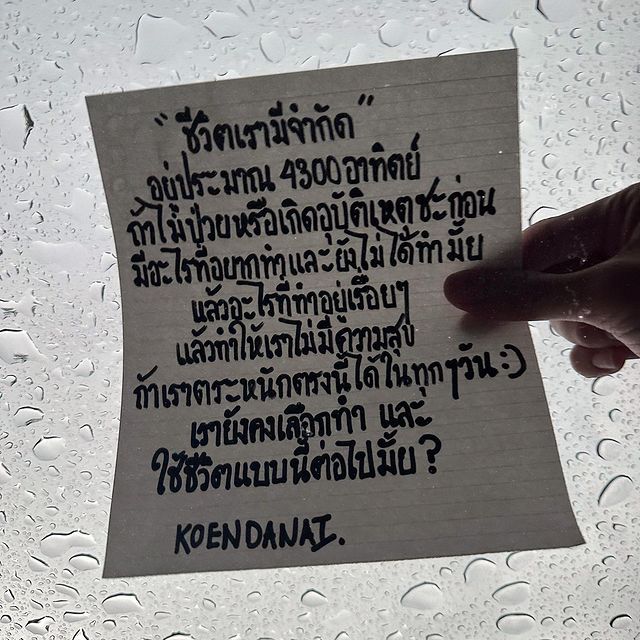 "ชีวิตเรามีจำกัด"
อยู่ประมาณ 4300 อาทิตย์
ถ้าไม่ป่วยหรือเกิดอุบัติเหตุซะก่อน
มีอะไรที่อยากทำและยังไม่ได้ทำมั้ย
แล้วอะไรที่ทำอยู่เรื่อยๆ
แล้วทำให้เราไม่มีความสุข
ถ้าเราตระหนักตรงนี้ได้ในทุกๆวัน :)
เรายังคงเลือกทำ และ
ใช้ชีวิตแบบนี้ต่อไปมั้ย ?
KOENDANAI.